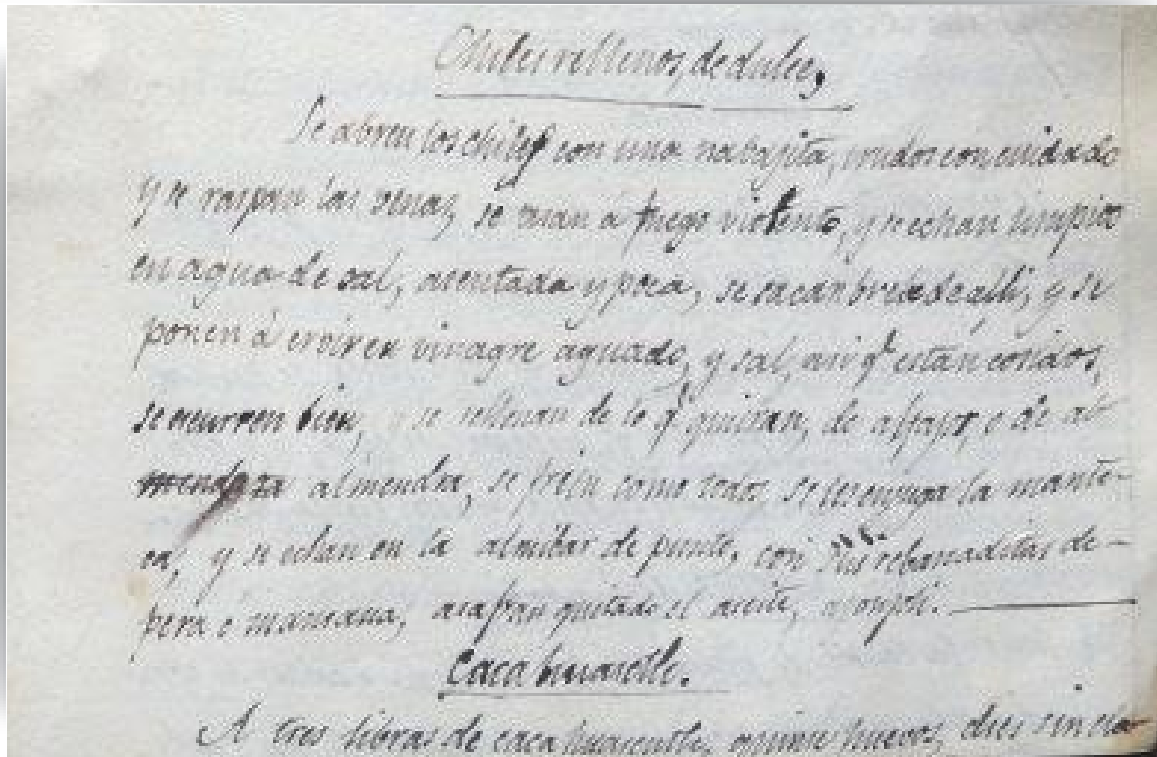 Chiles rellenos de dulce,
Se abren los chiles con una nabajita, crudos con cuidado
y se raspan las venas, se asan á fuego violento, y se echan limpios
en agua de sal, asentada y poca, se sacan breve de alli, y se
ponen á cocer en vinagre aguado, y sal, asi q.e están cocidos,
se escurren bien, y se rellenan de lo q.e quieran, de alfajor, o de al
almendra, se frien como todos, se les enjuga la mante-
ca, y se echan en la almibar de punto, con sus rebanaditas de-
pera o mansana, quitado el aceite,
Cacahuasentle.
A tres libras de cacahuasentle, quinse huevos, dies sin cla